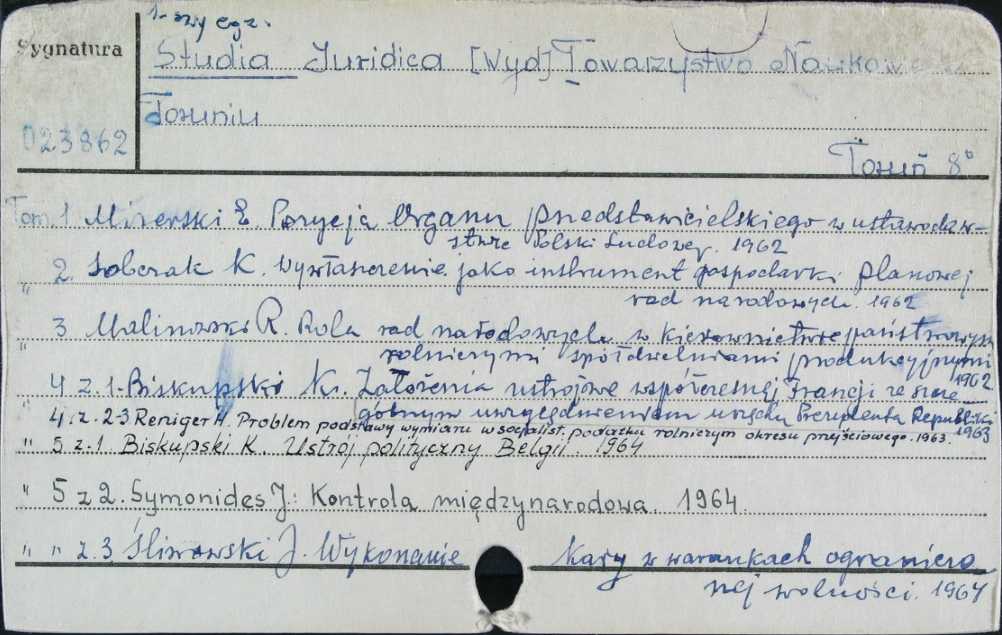 1-szy egz.
Sygnatura
Studia Juridica [Wyd] Towarzystwo Naukowe
Toruniu
023862
Toruń 8°
Tom. 1 Mirerski E. Pozycja Organu przedstawicielskiego w ustawodaw-
stwie Polski Ludowej. 1962
" 2. Soberak K. Wywłaszczenie jako instrument gospodarki planowej
rad narodowych. 1962
" 3 Malinowski R. Rola rad narodowych w kierownictwie państwowym
rolniczymi spółdzielniami produkcyjnymi
1962
" 4 z.1-Biskupski K. Założenia ustrojowe współczesnej Francji ze szcze-
gólnym uwzględnieniem urzędu Prezydenta Republiki
1963
4. z. 2-3 Reniger H. Problem podstawy wymiaru w socjalist. podatku rolniczym okresu przejściowego. 1963.
" 5 z-1. Biskupski K. Ustrój polityczny Belgii. 1964
" 5 z 2. Symonides J.: Kontrola międzynarodowa. 1964.
" " z. 3 Śliwowski J. Wykonanie kary w warunkach ograniczo
nej wolności. 1964